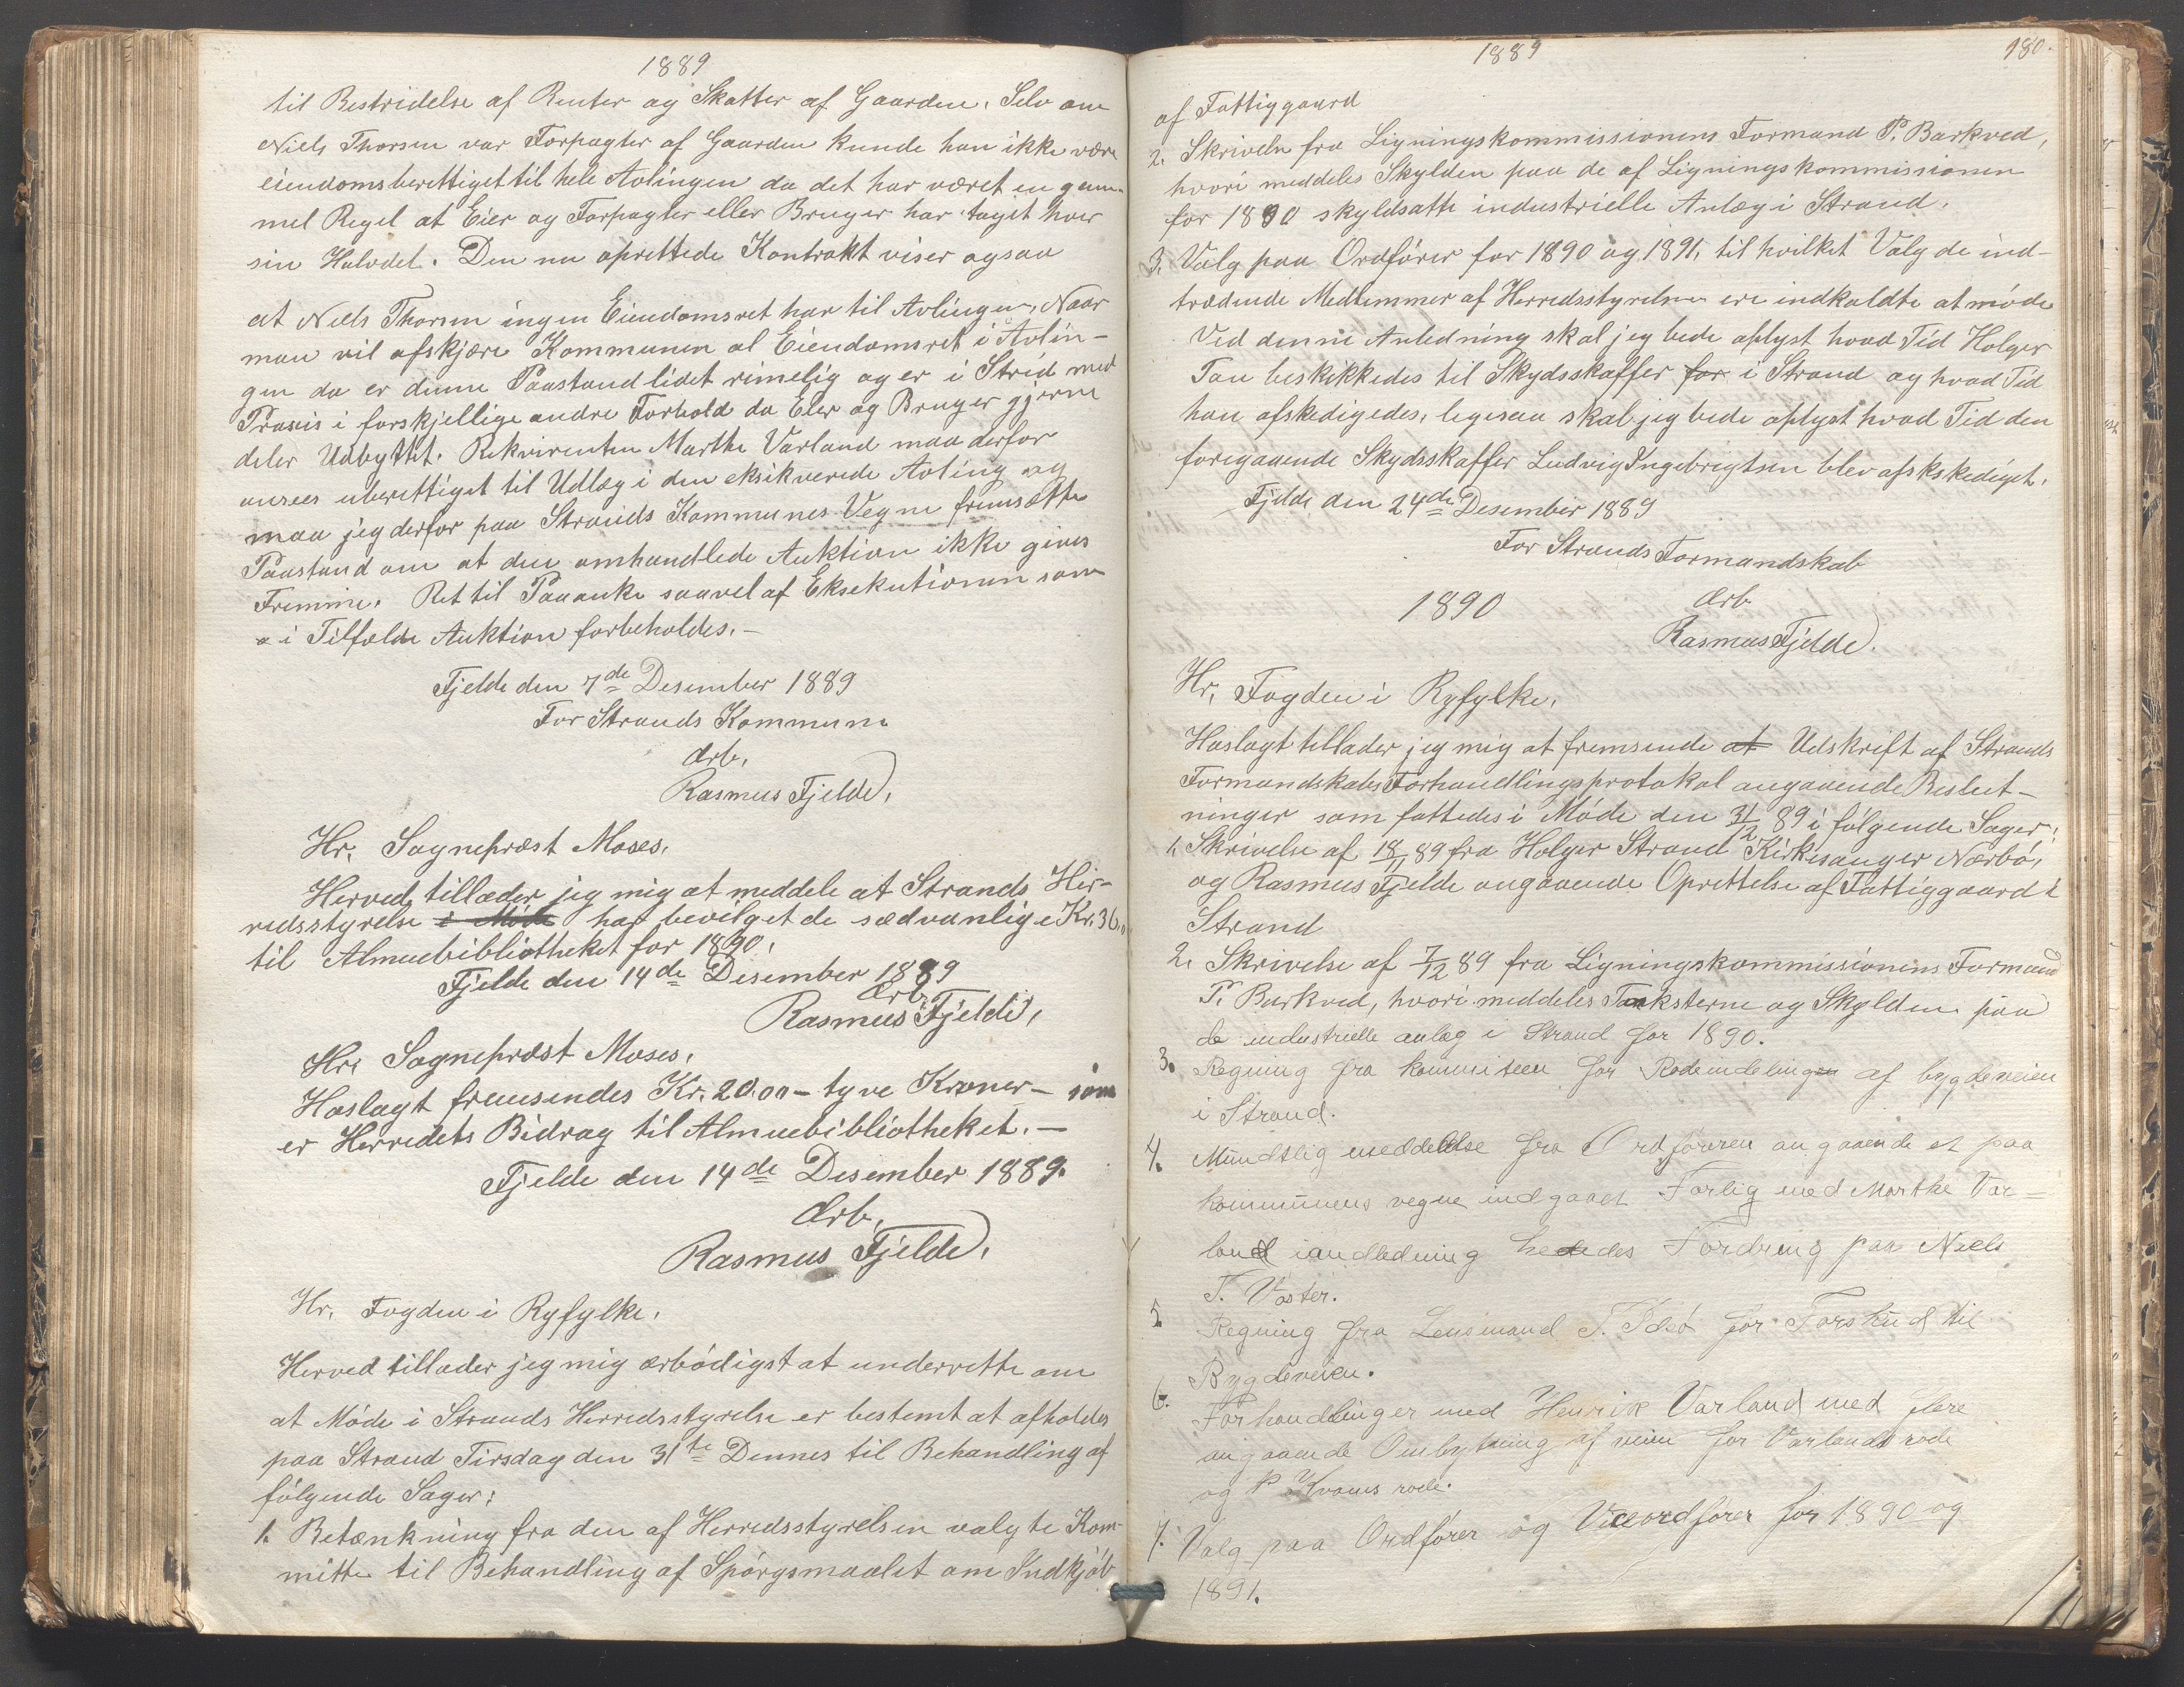 1889
til Bestridelse af Renter og Skatter af Gaarden. Selv om
Niels Thorsen var Forpagter af Gaarden kunde han ikke være
eiendomsberettiget til hele Avlingen da det har været en gam-
mel Regel at Eier og Forpagter eller Bruger har taget hver
sin Halvdel. Den nu oprettede Kontrakt viser ogsaa
at Niels Thorsen ingen Eiendomsret har til Avlingen, Naar
man vil afskjære Kommunen al Eiendomsret i Avlin-
gen da er denne Paastand lidet rimelig og er i Strid med
Praxis i forskjellige andre Forhold da Eier og Bruger gjerne
deler Udbyttet. Rekvirenten Marthe Varland maa derfor
ansees uberettiget til Udlæg i den eksikverede Avling og
maa jeg derfor paa Strands Kommunes Vegne fremsætte
Paastand om at den omhandlede Auktion ikke gives
Fremme. Ret til Paaanke saavel af Eksekutionen som
i Tilfælde Auktion forbeholdes.-
Fjelde den 7de Desember 1889
For Strands Kommune
Ærb,
Rasmus Fjelde,
Hr. Sognepræst Moses,
Herved tillader jeg mig at meddele at Strands Her-
redsstyrelse i Møde har bevilget de sædvanlige Kr. 36,,
til Almuebibliotheket for 1890,
Fjelde den 14de Desember 1889
Ærb,
Rasmus Fjelde,
Hr. Sognepræst Moses,
Hoslagt fremsendes Kr. 20.00- tyve Kroner- som
er Herredets Bidrag til Almuebibliotheket.-
Fjelde den 14de Desember 1889.
Ærb,
Rasmus Fjelde,
Hr. Fogden i Ryfylke,
Herved tillader jeg mig ærbødigst at underrette om
at Møde i Strands Herredsstyrelse er bestemt at afholdes
paa Strand Tirsdag den 31te Dennes til Behandling af
følgende Sager:
1. Betænkning fra den af Herredsstyrelsen valgte Kom-
mitte til Behandling af Spørgsmaalet om Indkjøb
1889
180.
af Fattiggaard
2. Skriveln fra Ligningskommissionens Formand P. Barkved,
hvori meddeles Skylden paa de af Ligningskommissionen
for 1890 skyldsatte industrielle Anlæg i Strand.
3. Valg paa Ordfører for 1890 og 1891, til hvilket Valg de ind-
trædende Medlemmer af Herredsstyrelsen ere indkaldte at møde
Ved denne Anledning skal jeg bede oplyst hvad Tid Holger
Tau beskikkedes til Skydsskaffer for i Strand og hvad Tid
han afskedigedes, legesaa skal jeg bede oplyst hvad Tid den
foregaaende Skydsskaffer Ludvig Ingebrigtsen blev afskskediget.
Fjelde den 24de Desember 1889
For Strands Formandskab
Ærb
1890
Rasmus Fjelde.
Hr. Fogden i Ryfylke,
Hoslagt tillader jeg mig at fremsende at Udskrift af Strands
Formandskabs Forhandlingsprotokol angaaende Beslut-
ninger som fattedes i Møde den 31/12 89 i følgende Sager:
1. Skrivelse af 18/11 89 fra Holger Strand Kirkesanger Nærbø,
og Rasmus Fjelde angaaende Oprettelse af Fattiggaard i
Strand
2. Skrivelse af 7/12 89 fra Ligningskommissionens Formand
P. Barkved, hvori meddeles Taksterne og Skylden paa
de industrielle anlæg i Strand for 1890.
3. Regning fra komniteen for Rodeindelingen af bygdeveien
i Strand.
4. Mundtlig meddelelse fra Ordføreren angaaende et paa
kommunens vegne indgaaet Forlig med Marthe Var=
land iandledning hendes Fordring paa Niels
T. Voster.
5 Regning fra Lensmand T. Idsø for Forskud til
Bygdeveien.
6. Forhandlinger med Henrik Varland med flere
angaaende Ombytning af veien for Varlands rode
og P Kvams rode.
7. Valg paa Ordfører og Viceordfører for 1890 og
1891.